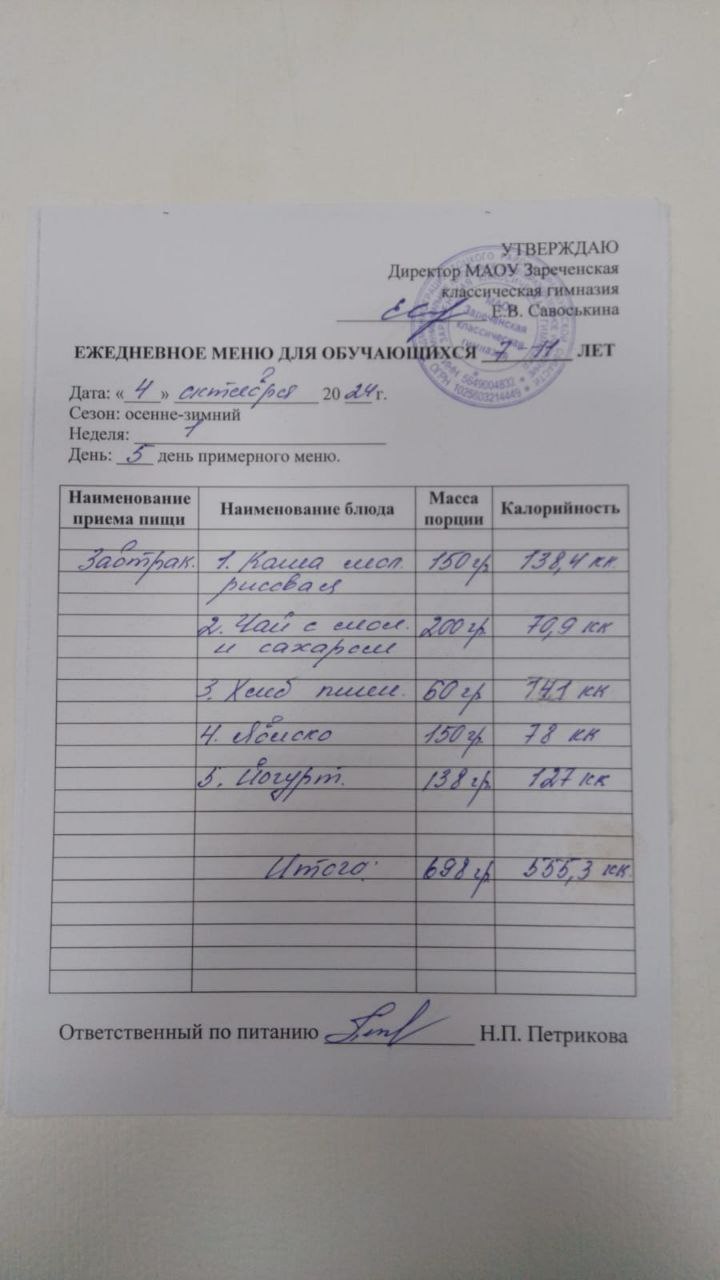 УТВЕРЖДАЮ
Директор МАОУ Зареченская
классическая гимназия
Е.В. Савоськина
ЕЖЕДНЕВНОЕ МЕНЮ ДЛЯ ОБУЧАЮЩИХСЯ 7-11 ЛЕТ
Дата: «4» октября 2024 г.
Сезон: осенне-зимний
Неделя: 1
День: 5 день примерного меню.
Наименование приема пищи Наименование блюда Масса порции Калорийность
Завтрак. 1. Каша мол. 150 гр 138,4 кк
рисовая
2. Чай с мол. 200 гр 70,9 кк
и сахаром
3. Хлеб пшен. 60 гр 141 кк
4. Яблоко 150 гр 78 кк
5. Йогурт. 138 гр 127 кк
Итого: 698 гр 555,3 кк
Ответственный по питанию Н.П. Петрикова
МАОУ
Зареченская
классическая
гимназия
ИНН 5649004832 * ОГРН 1025603214449